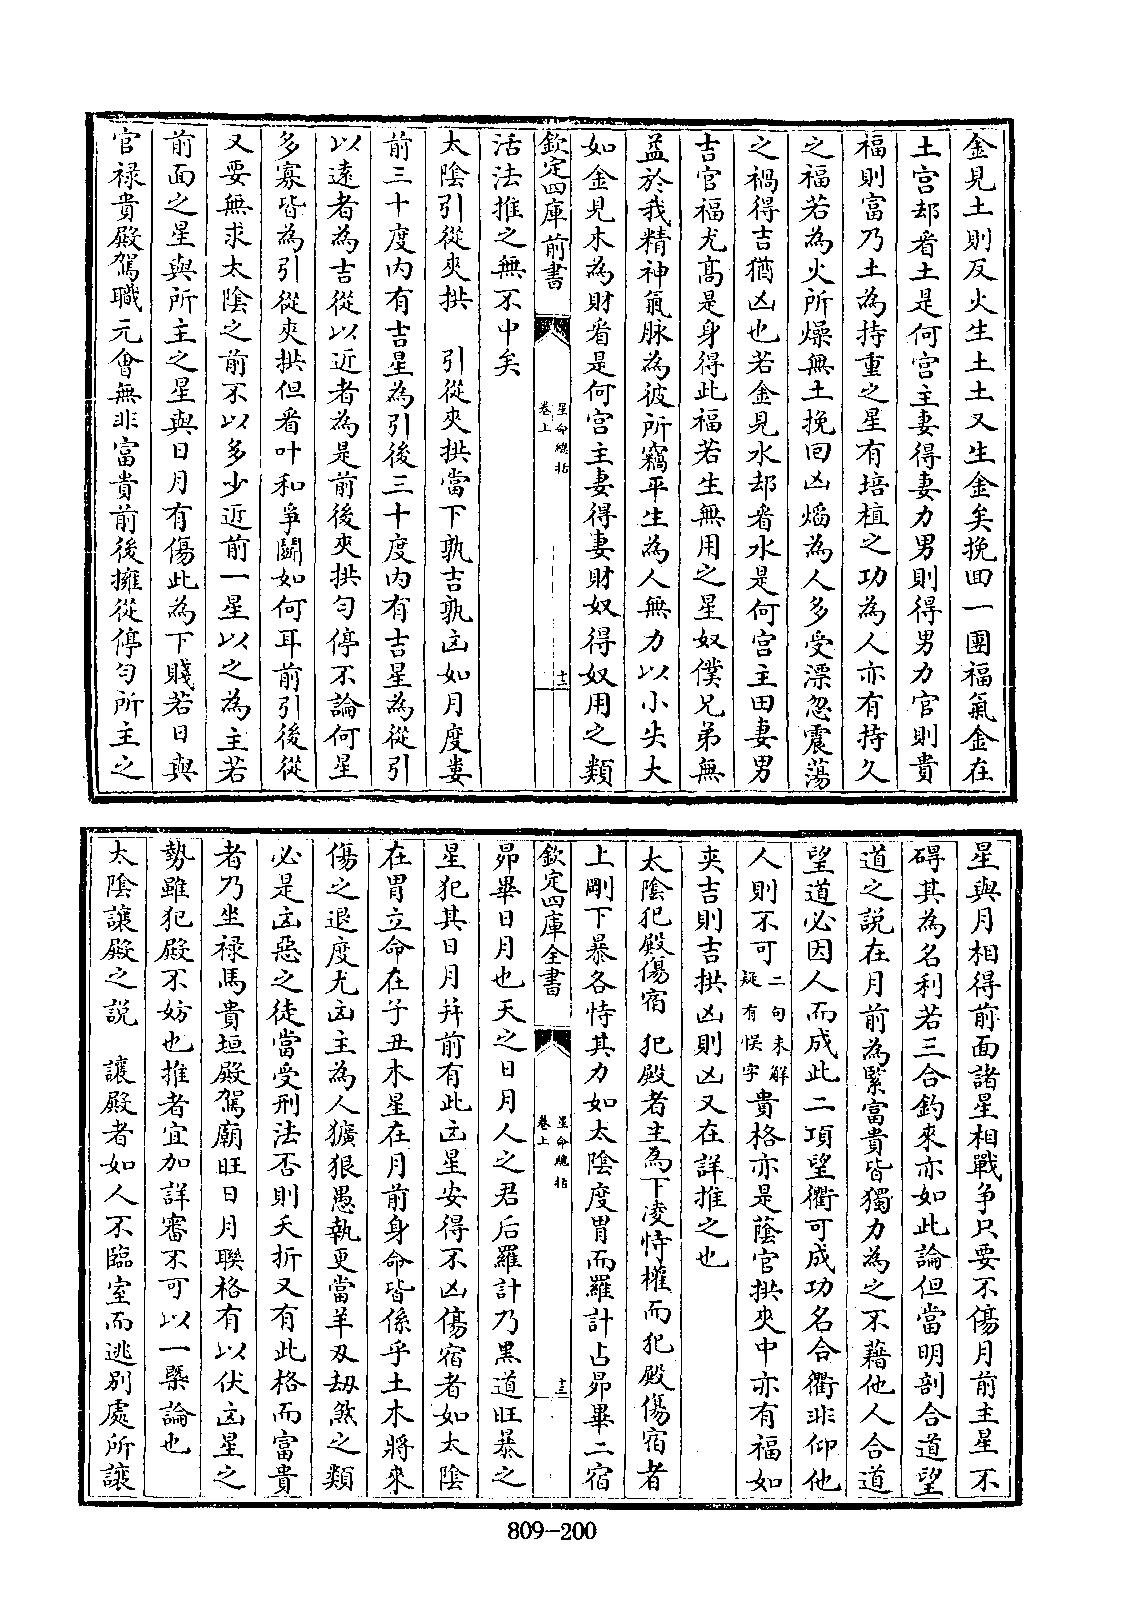 金見土則反火生土土又生金矣挽回一團福氣金在
土宮却看土是何宮主妻得妻力男則得男力官則貴
福則富乃土為持重之星有培植之功為人亦有持久
之福若為火所燥無土挽回凶熖為人多受漂忽震蕩
之禍得吉猶凶也若金見水却看水是何宮主田妻男
吉官福尤髙是身得此福若生無用之星奴僕兄弟無
益於我精神氣脉為彼所竊平生為人無力以小失大
如金見木為財看是何宮主妻得妻財奴得奴用之類
欽定四庫前書
星命總括
卷上
十二
活法推之無不中矣
太陰引從夾拱　引從夾拱當下孰吉孰凶如月度婁
前三十度内有吉星為引後三十度内有吉星為從引
以遠者為吉從以近者為是前後夾拱勻停不論何星
多寡皆為引從夾拱但看叶和爭鬭如何耳前引後從
又要無求太陰之前不以多少近前一星以之為主若
前面之星與所主之星與日月有傷此為下賤若日與
官禄貴殿駕職元會無非富貴前後擁從停勻所主之
星與月相得前面諸星相戰争只要不傷月前主星不
碍其為名利若三合釣來亦如此論但當明剖合道望
道之説在月前為緊富貴皆獨力為之不藉他人合道
望道必因人而成此二項望衢可成功名合衢非仰他
人則不可二句未解疑有悮字貴格亦是蔭官拱夾中亦有福如
夾吉則吉拱凶則凶又在詳推之也
太陰犯殿傷宿　犯殿者主為下凌恃權而犯殿傷宿者
上剛下暴各恃其力如太陰度胃而羅計占昴畢二宿
欽定四庫全書
星命總括
卷上
十三
昴畢日月也天之日月人之君后羅計乃黒道旺暴之
星犯其日月并前有此凶星安得不凶傷宿者如太陰
在胃立命在子丑木星在月前身命皆係乎土木將來
傷之退度尤凶主為人獷狠愚執更當羊刃刼煞之類
必是凶惡之徒當受刑法否則夭折又有此格而富貴
者乃坐禄馬貴垣殿駕廟旺日月聯格有以伏凶星之
勢雖犯殿不妨也推者宜加詳審不可以一槩論也
太陰讓殿之説　讓殿者如人不臨室而逃别處所讓
809-200